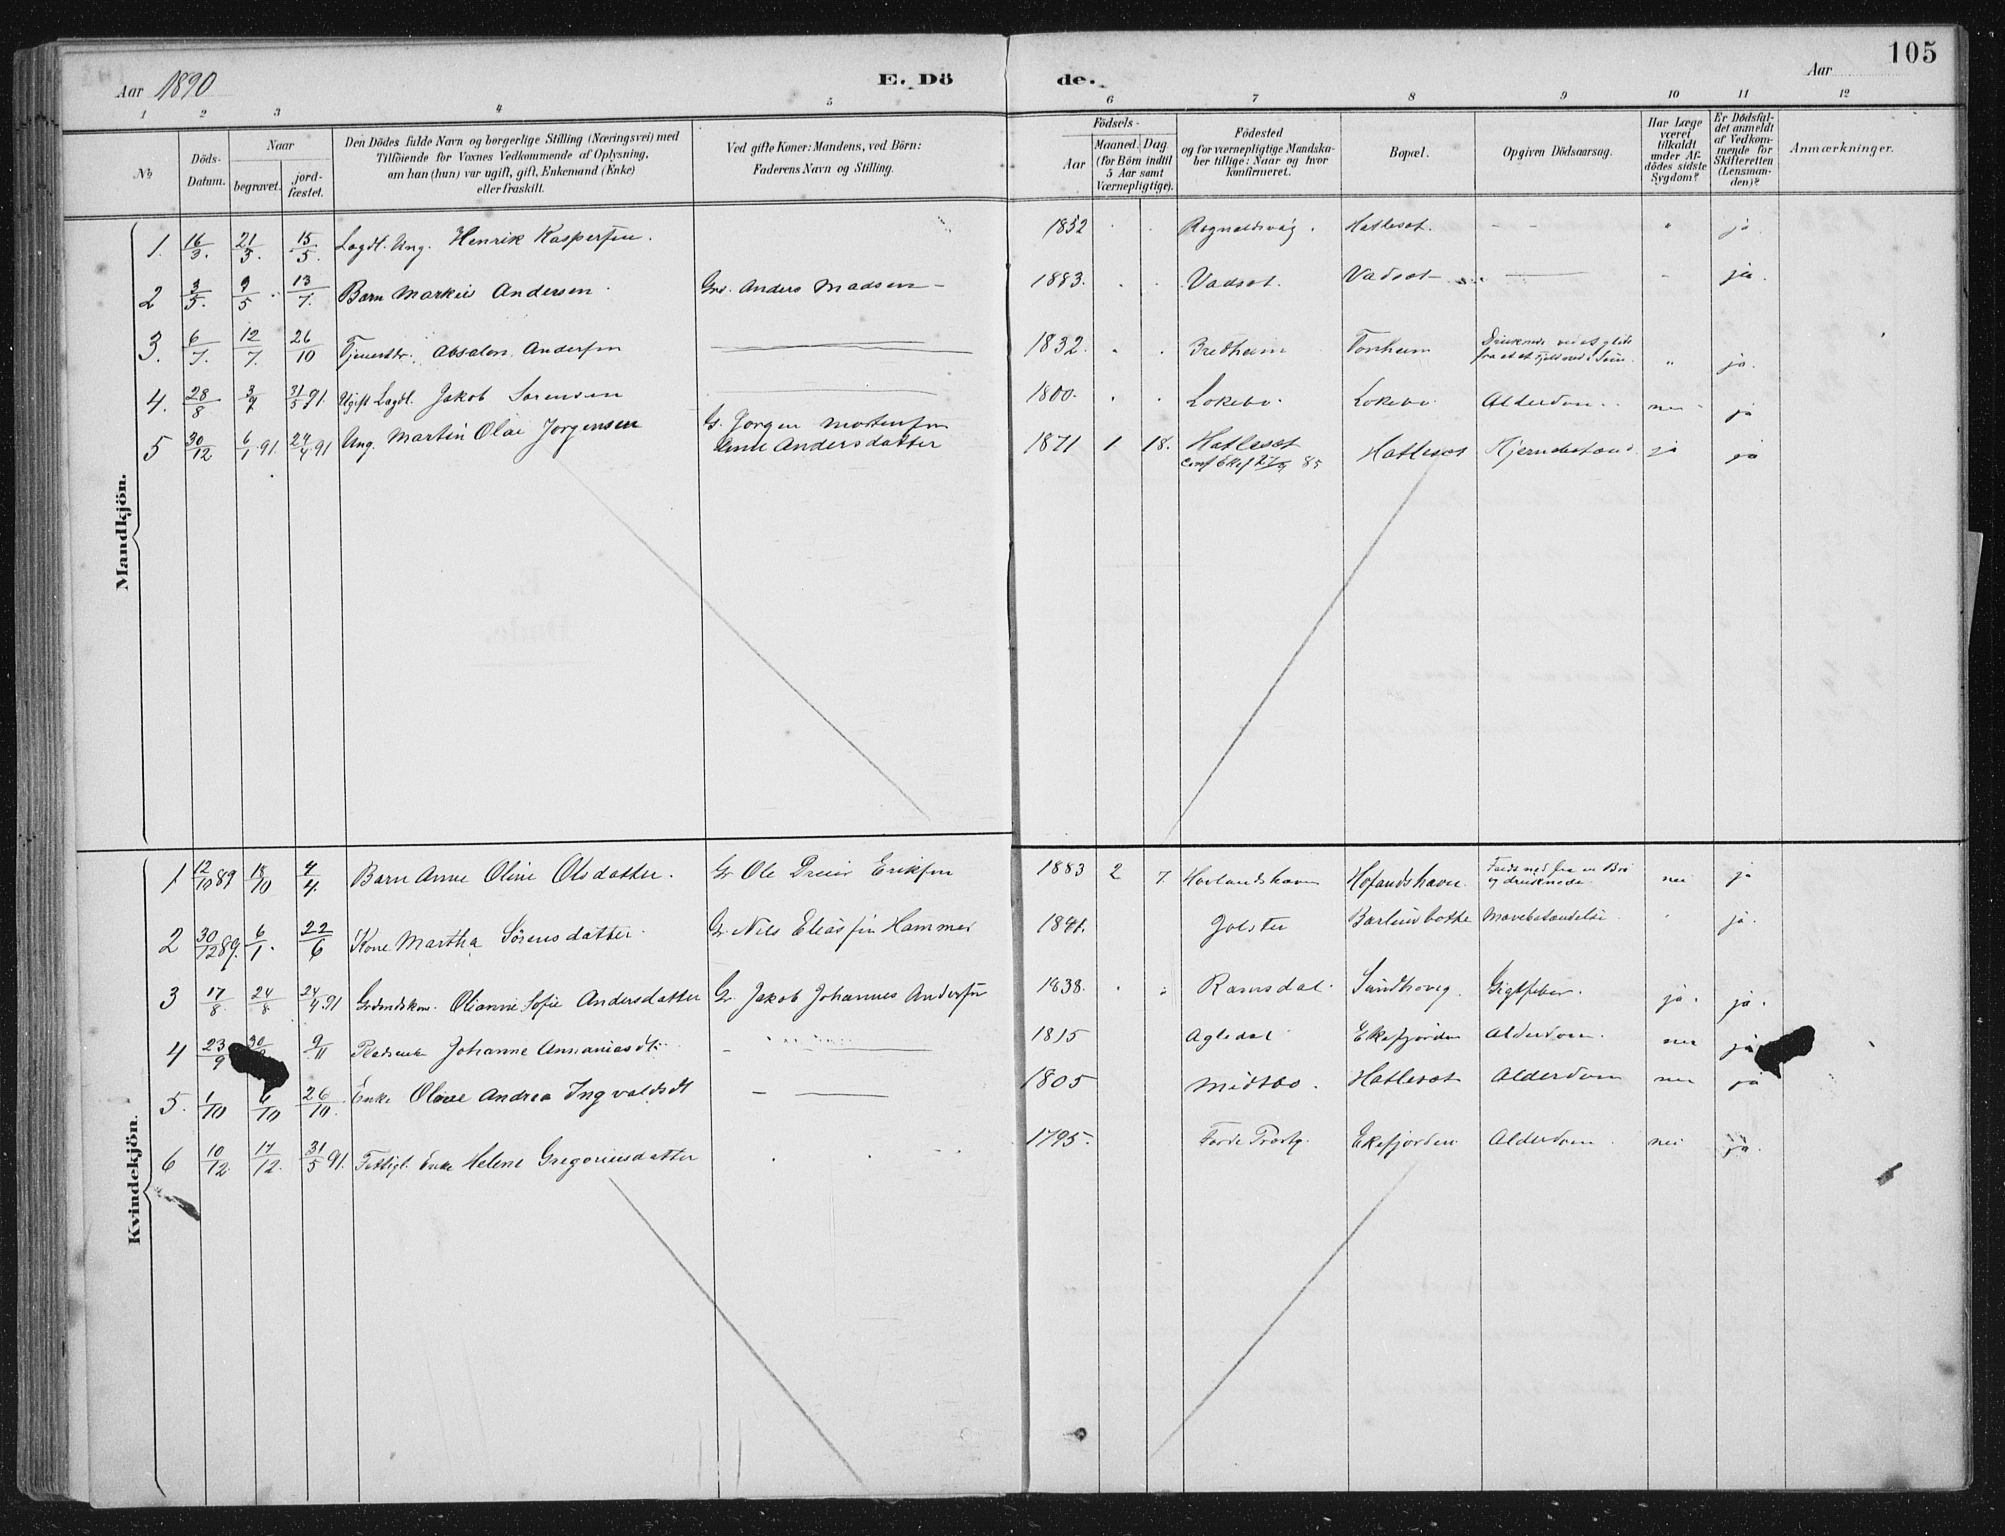 105
Aar 1890
E. Dö
de.
Aar
1 2 3 4 5 6 7 8 9 10 11 12
No
Döds-
Datum.
Naar
begravet.
jord-
fæstet.
Den Dödes fulde Navn og borgerlige Stilling (Næringsvei) med
Tilföiende for Voxnes Vedkommende af Oplysning,
om han (hun) var ugift, gift, Enkemand (Enke)
eller fraskilt.
Ved gifte Koner: Mandens, ved Börn:
Faderens Navn og Stilling.
Födsels-
Aar
Maaned. Dag
(for Börn indtil
5 Aar samt
Værnepligtige).
Födested
og for værnepligtige Mandska-
ber tillige: Naar og hvor
konfirmeret.
Bopæl.
Opgiven Dödsaarsag.
Har Læge
været
tilkaldt
under Af-
dödes sidste
Sygdom?
Er Dödsfal-
det anmeldt
af Vedkom-
mende for
Skifteretten
(Lensman-
den)?
Anmærkninger.
Mandkjön.
1. 16/3. 21/3. 15/5. Lægdl. Ung. Henrik Kaspersen. 1852 Hatleset. ja
2 3/5. 9/5. 13/7. Barn Markus Andersen. Grd. Anders Madsen 1883. Vadset. Vadset ja.
3. 6/7. 12/7. 26/10 Absalon Andersen 1832. Bredheim Tonheim Druknede ved at glide
ja.
4. 28/8 31/5 91. Ugift Lægdl. Jakob Sørensen 1800. Lokebø. Lokebø Alderdom. nei ja
5 30/12 6/1 91. 24/4 91 Ung. Martin Olai Jørgensen G. Jørgen Mortensen
Anne Andersdatter 1871 1 18. Hatleset
85 Hatleset ja ja
Kvindekjön.
1 12/10 89 18/10 4/4. Barn Anne Oline Olsdatter. Gr Ole Eriksen 1883 2 7. Hovlandshavn Hoflandshavn. Faldt ned fra en Bro
og druknede. nei ja
2 30/12 89. 6/1. 22/6 Kone Martha Sörensdatter Gr Nils Eliassen Hammer 1841. Jølster ja.
3 17/8. 24/8 24/4 91 Olianne Sofie Andersdatter Gr. Jakob Johannes Andersen 1838. Ramsdal. Sandhoveg. Gigtfeber. ja. ja.
4 23/9 30/ 9/11 Johanne Annaniasdt. 1815 Agledal Ekefjorden Alderdom. nei ja
5. 1/10 6/10 26/10. Enke Oline Andrea Ingvaldsdt 1805 Midtbø. Hatleset Alderdom nei ja
6 10/12 17/12. 31/5 91. Fattigl. Enke Helene Gregoriusdatter 1795. Ekefjorden Alderdom nei ja.